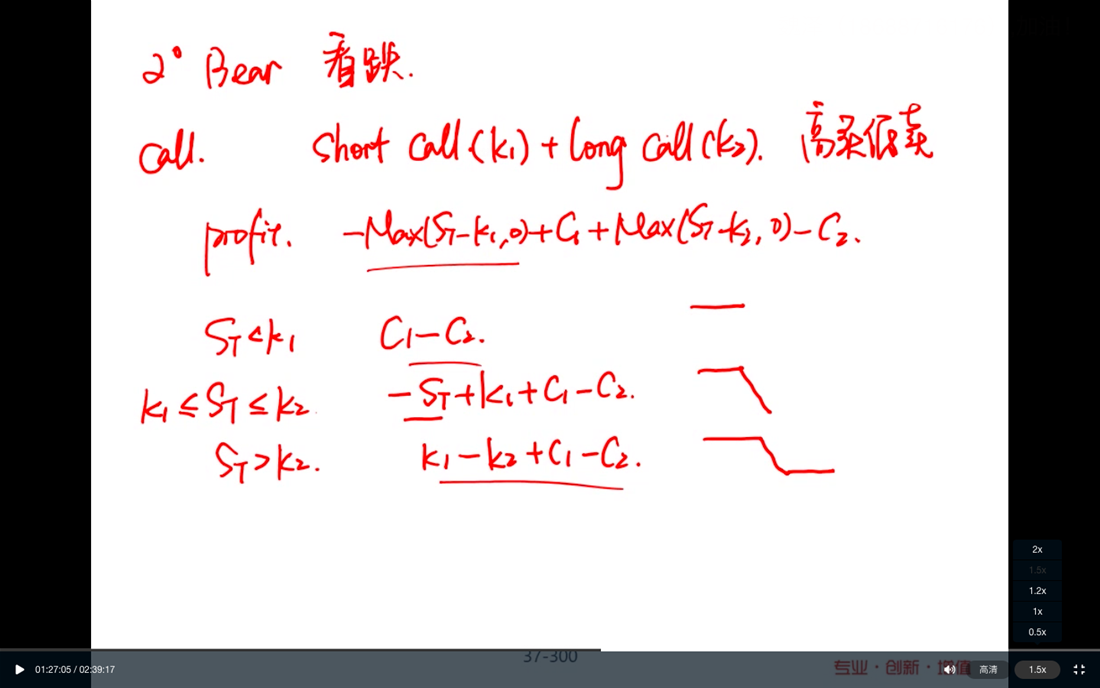 2° Bear 看跌.
call. short call(k₁) + long call(k₂). 高买低卖
profit. -Max(S_T-k₁,0)+C₁+Max(S_T-k₂,0)-C₂.
S_T<k₁ C₁-C₂.
k₁≤S_T≤k₂. -S_T+k₁+C₁-C₂.
S_T>k₂. k₁-k₂+C₁-C₂.
2x
1.5x
1.2x
1x
0.5x
37-300
01:27:05 / 02:39:17
专业·创新·增值
高清
1.5x